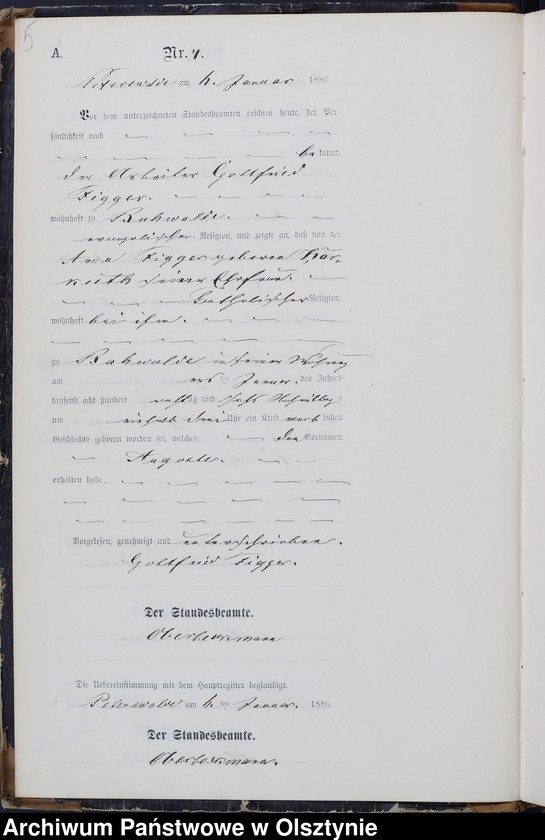 5
A.
Nr. 4.
Peterswalde am 4. Januar 1886.
Vor dem unterzeichneten Standesbeamten erschien heute, der Per-
sönlichkeit nach
bekannt,
der Arbeiter Gottfried
Figger.
wohnhaft zu
evangelischer Religion, und zeigte an, daß von der
Anna Figger geborene
seiner Ehefrau.
katholischer Religion,
wohnhaft bei ihm.
zu in seiner Wohnung
am ersten Januar, des Jahres
tausend acht hundert achtzig und sechs Nachmittags
um drei Uhr ein Kind weiblichen
Geschlechts geboren worden sei, welches den Vornamen
Auguste.
erhalten habe.
Vorgelesen, genehmigt und unterschrieben.
Gottfried Figger.
Der Standesbeamte.
Die Uebereinstimmung mit dem Hauptregister beglaubigt.
Peterswalde am 4. ten Januar. 1886.
Der Standesbeamte.
Archiwum Państwowe w Olsztynie